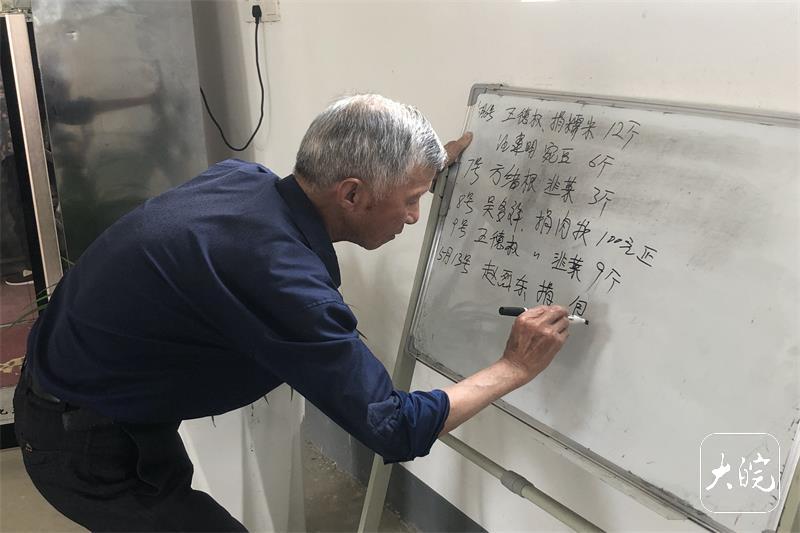 王德权、捐糯米 12斤
豌豆 6斤
7号 方绪根 韭菜 3斤
8号 吴多祥、捐肉款 100元正
9号 王德权 〃 韭菜 9斤
5月13号 赵烈东 捐 包
大皖